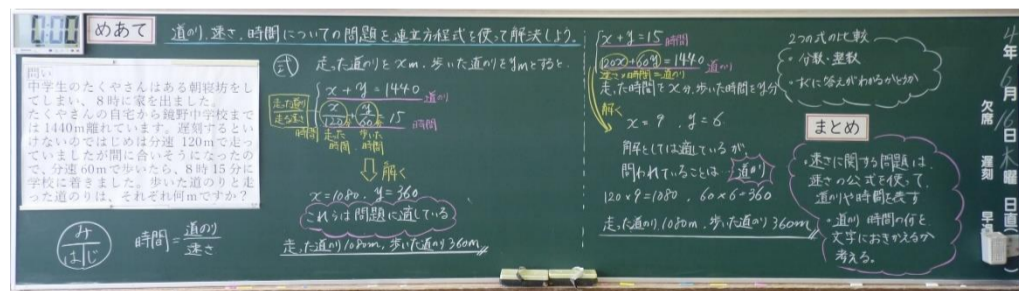 0:00
めあて
道のり、速さ、時間についての問題を連立方程式を使って解決しよう。
問い
中学生のたくやさんはある朝寝坊をし
てしまい、8時に家を出ました。
たくやさんの自宅から鏡野中学校まで
は1440m離れています。遅刻するとい
けないのではじめは分速120mで走っ
ていましたが間に合いそうになったの
で、分速60mで歩いたら、8時15分に
学校に着きました。歩いた道のりと走
った道のりは、それぞれ何mですか?
み
は じ
時間=道のり/速さ
式
走った道のりをxm、歩いた道のりをymとすると、
x+y=1440 道のり
走った道のり
走る速さ
x/120+y/60=15 時間
時間
走った時間
歩いた時間
解く
x=1080、y=360
これらは問題に適している
走った道のり1080m、歩いた道のり360m
x+y=15 時間
120x+60y=1440 道のり
速さ×時間=道のり
走った時間をx分、歩いた時間をy分
解く
x=9、y=6
解としては適しているが、
問われていることは 道のり
120×9=1080、60×6=360
走った道のり1080m、歩いた道のり360m
2つの式の比較
・分数、整数
・すぐに答えがわかるかどうか
まとめ
・速さに関する問題は、
速さの公式を使って
道のりや時間を表す
・道のり、時間の何を
文字におきかえるか
考える。
4年6月16日木曜 日直
欠席
遅刻
早